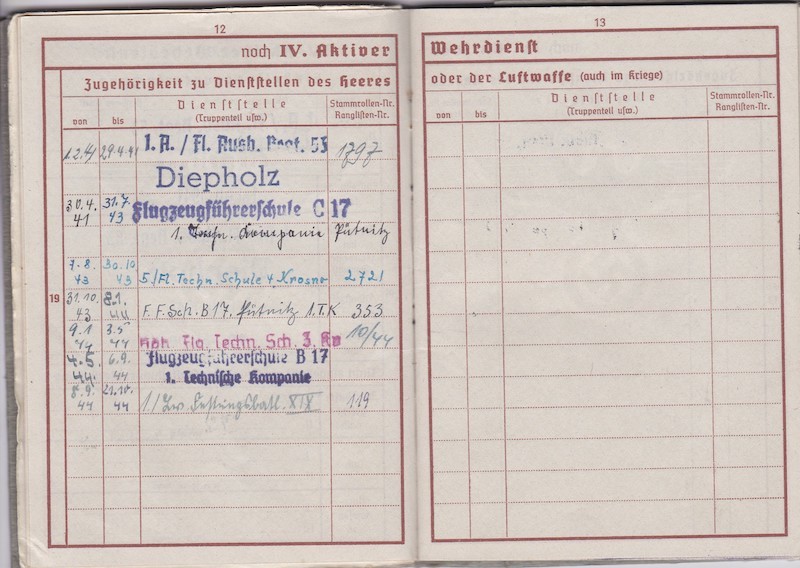 12
noch IV. Aktiver
Zugehörigkeit zu Dienststellen des Heeres
von
bis
Dienststelle
(Truppenteil usw.)
Stammrollen-Nr.
Ranglisten-Nr.
1.2.41 29.4.41 1. A. / Fl. Ausb. Regt. 53 1797
Diepholz
30.4. 31.7. Flugzeugführerschule C 17
41 43
1. Techn. Kompanie Pütnitz
7.8. 30.10
43 43 5./Fl. Techn. Schule 4 Krosno 2721
19
31.10. 8.1.
43 44 F.F.Sch. B 17. Pütnitz 1.T.K 353
9.1 3.5
44 44 Flg. Techn. Sch. 3. 10/44
4.5. 6.9. Flugzeugführerschule B 17
44. 44 1. Technische Kompanie
8.9. 21.10.
44 44 1./Lw. Festungsbatl. XIX 119
13
Wehrdienst
oder der Luftwaffe (auch im Kriege)
von
bis
Dienststelle
(Truppenteil usw.)
Stammrollen-Nr.
Ranglisten-Nr.